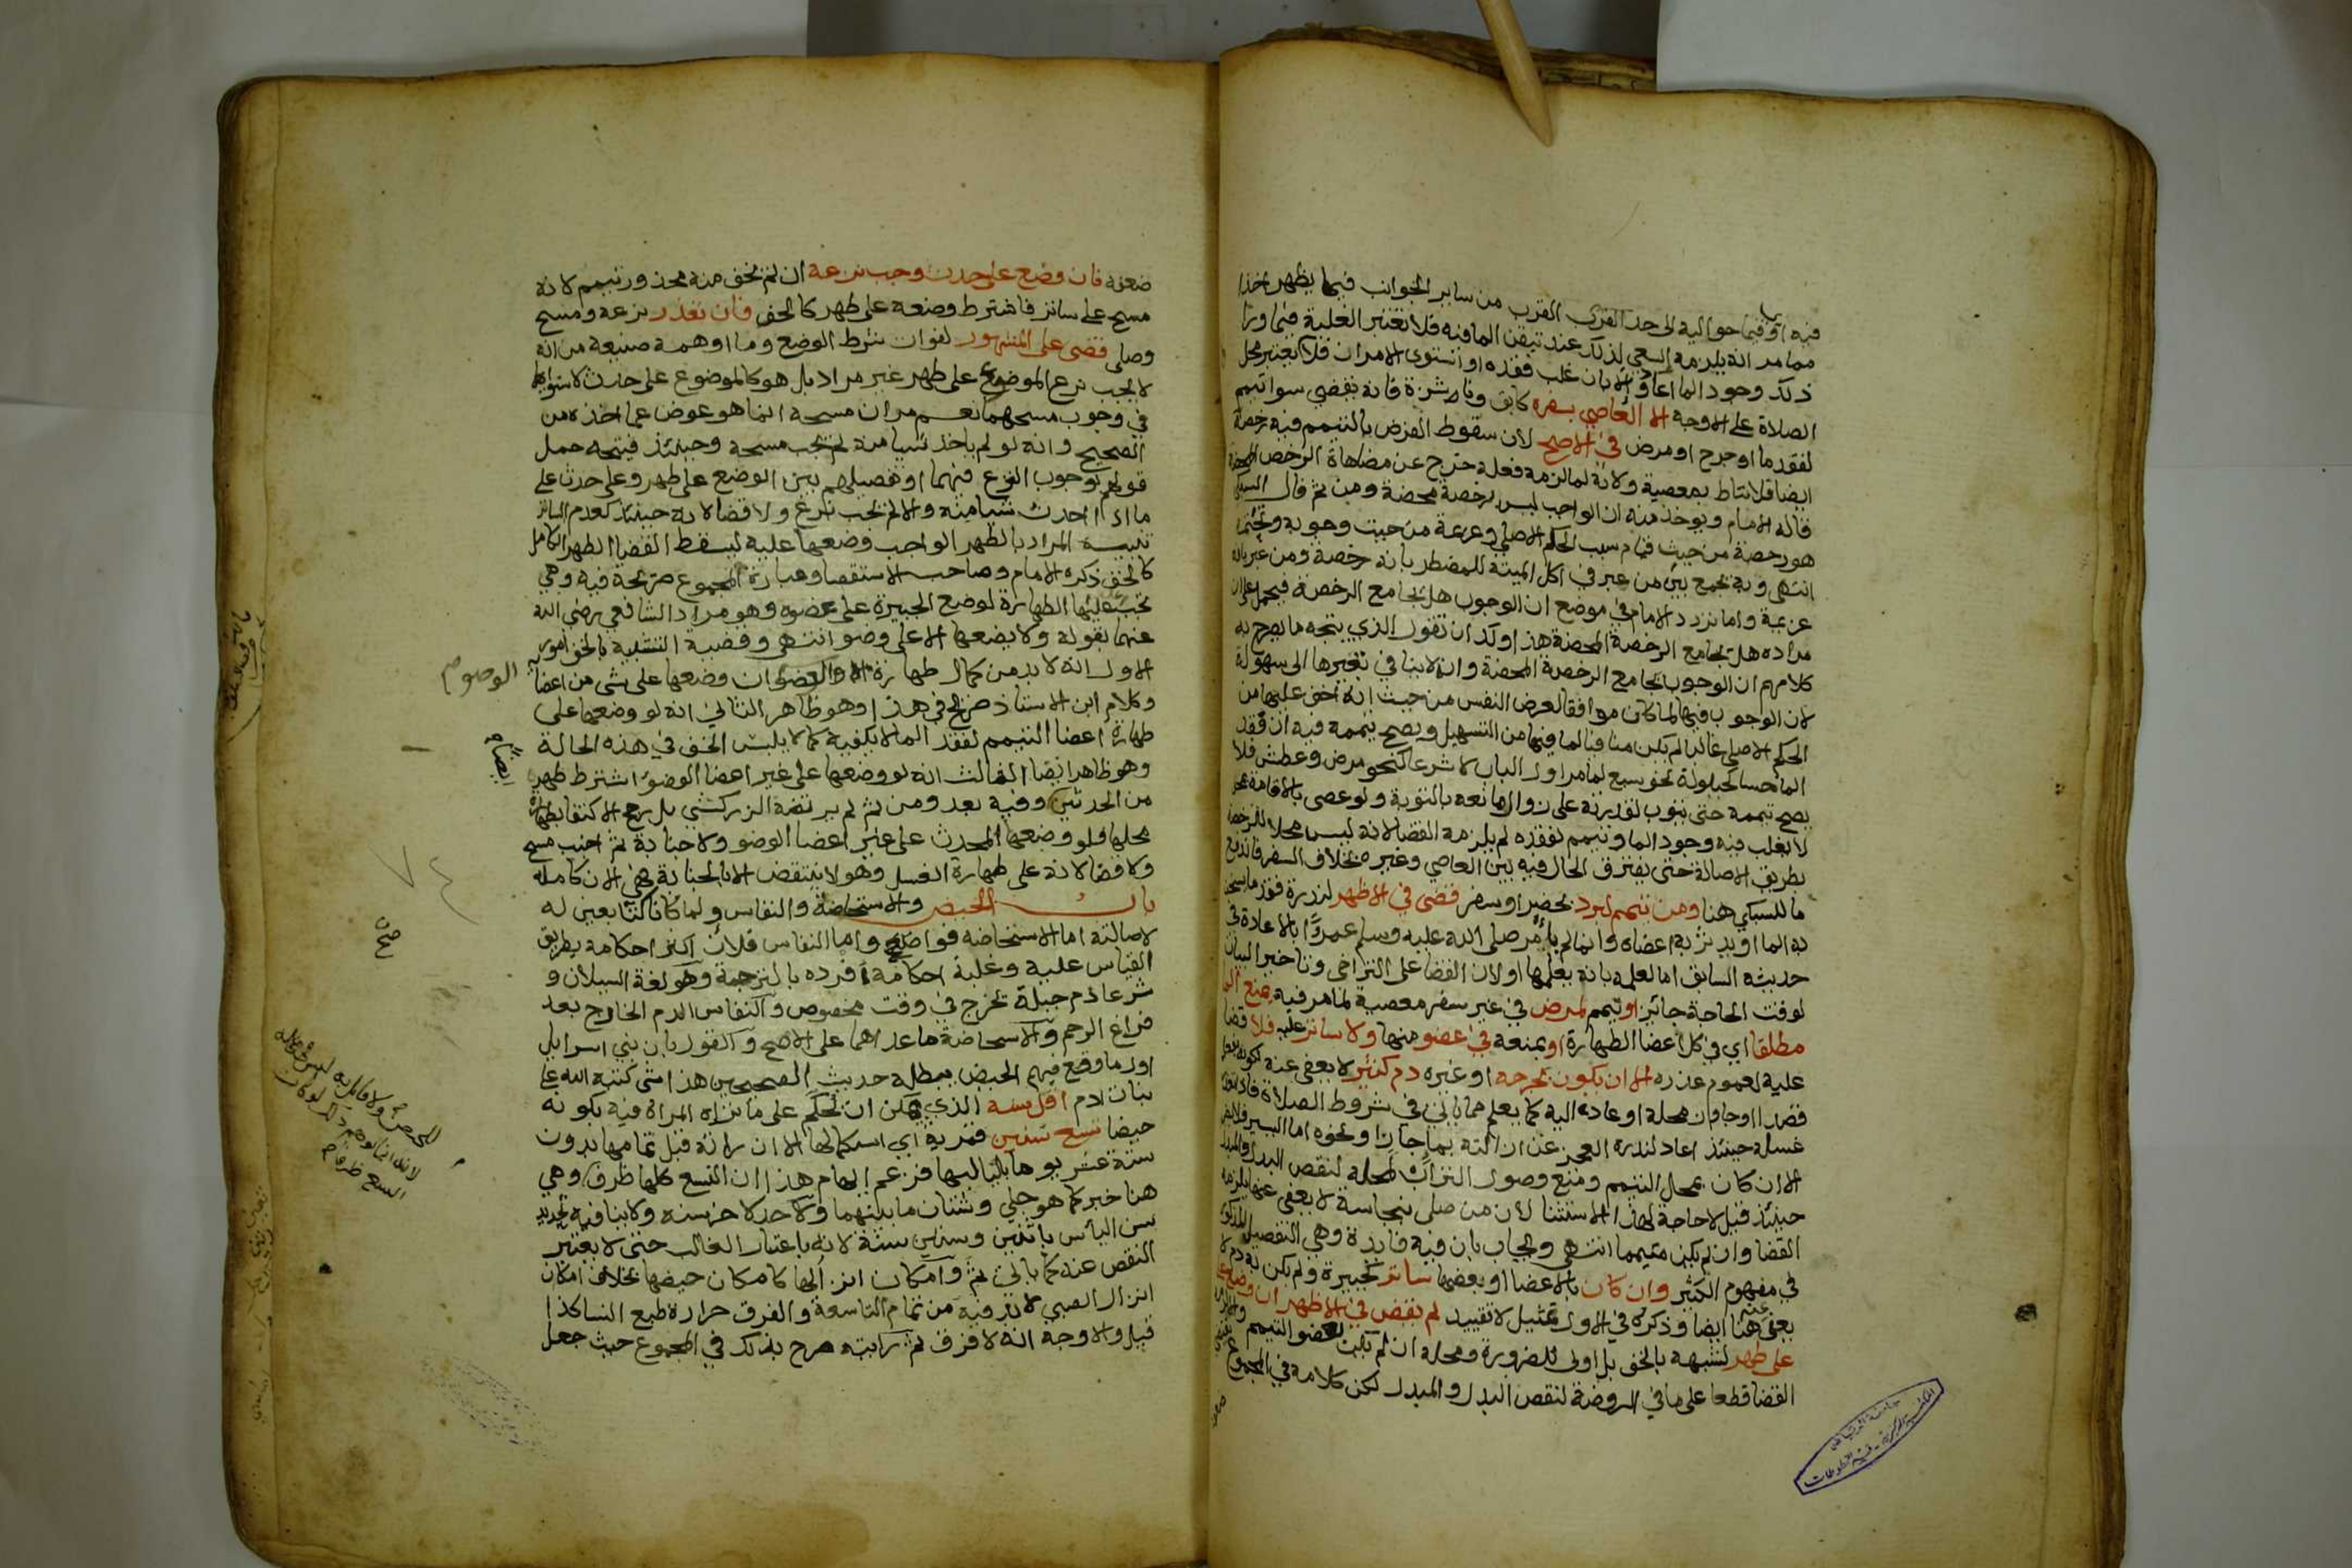 فيه او فيما حواليه الى حد القرب من ساير الجوانب فيما يظهر اخذا
مما مر انه يلزمه السعي لذلك عند تيقن الما فيه فلا تعتبر الغلبة فيما ورا
ذلك وجود الما اعا والا بان غلب فقده او استوى الامران فلا يعتبر محل
الصلاة على الاوجه الا العاصي بسفره كابق وناشزة فانه يقضي سوا تيمم
لفقد ما او جرح او مرض في الاصح لان سقوط الفرض بالتيمم فيه رخصة
ايضا فلا تناط بمعصية ولانه لما لزمه فعله خرج عن مضاهاة الرخص المحضة
قاله الامام ويوخذ منه ان الواجب ليس برخصة محضة ومن ثم قال السبكي
هو رخصة من حيث قيام سبب الحكم الاصلي وعزيمة من حيث وجوبه وتحتمه
انتهى وبه يجمع بين من عبر في اكل الميتة للمضطر بانه رخصة ومن عبر بانه
عزيمة واما تردد الامام في موضع ان الوجوب هل يجامع الرخصة فيحمل على ان
مراده هل يجامع الرخصة المحضة هذا ولك ان تقول الذي يتجه ما يصرح به
كلامهم ان الوجوب يجامع الرخصة المحضة وانه لا ينافي تغيرها الى سهولة
لان الوجوب فيها لما كان موافقا لغرض النفس من حيث انه اخف عليها من
الحكم الاصلي غالبا لم يكن منافيا لما فيها من التسهيل ويصح تيممه فيه ان فقد
الما حسا لحيلولة نحو سبع لما مر اول الباب لا شرعا كنحو مرض وعطش فلا
يصح تيممه حتى يتوب لقدرته على زوال مانعه بالتوبة ولو عصى بالاقامة بمحل
لا يغلب فيه وجود الما وتيمم لفقده لم يلزمه القضا لانه ليس محلا للرخصة
بطريق الاصالة حتى يفترق الحال فيه بين العاصي وغيره بخلاف السفر فاندفع
ما للسبكي هنا ومن تيمم لبرد بحضر او سفر قضى في الاظهر لندرة فقد ما يسخن
به الما او يدثر به اعضاه وانما لم يامر صلى الله عليه وسلم عمرا بالاعادة في
حديثه السابق اما لعلمه بانه يعلمها او لان القضا على التراخي وتاخير البيان
لوقت الحاجة جائز او تيمم لمرض في غير سفر معصية لما مر فيه يمنع الما
مطلقا اي في كل اعضا الطهارة او يمنعه في عضو منها ولا ساتر عليه فلا قضا
عليه لعموم عذره الا ان يكون بجرحه او غيره دم كثير لا يعفى عنه لكونه بفعله
قصدا او جاوز محله او عاد اليه كما يعلم مما ياتي في شروط الصلاة فاذا تعذر
غسله حينئذ اعاد لندرة العجز عن ازالته بما حار او نحوه اما اليسير فلا يضر
الا ان كان بمحل التيمم ومنع وصول التراب لمحله لنقص البدل والمبدل
حينئذ قيل لا حاجة لهذا الاستثنا لان من صلى بنجاسة لا يعفى عنها يلزمه
القضا وان لم يكن متيمما انتهى ويجاب بان فيه فايدة وهي التفصيل المذكور
في مفهوم الكثير وان كان بالاعضا او بعضها ساتر كجبيرة ولم يكن به دم لا
يعفى عنه هنا ايضا وذكره في الاول تمثيل لا تقييد لم يقض في الاظهر ان وضع
على طهر لشبهه بالخف بل اولى للضرورة ومحله ان لم يكن بعضو التيمم والا لزمه
القضا قطعا على ما في الروضة لنقص البدل والمبدل لكن كلامه في المجموع
ضعفه فان وضع على حدث وجب نزعه ان لم يخف منه محذور تيمم لانه
مسح على ساتر فاشترط وضعه على طهر كالخف فان تعذر نزعه ومسح
وصلى قضى على المشهور لفوات شرط الوضع وما اوهمه صنيعه من انه
لا يجب نزع الموضوع على طهر غير مراد بل هو كالموضوع على حدث لاستوائهما
في وجوب مسحهما نعم مر ان مسحه انما هو عوض عما اخذه من
الصحيح وانه لو لم ياخذ شيا منه لم يجب مسحه وحينئذ فيتجه حمل
قولهم بوجوب النزع فيهما او تفصيلهم بين الوضع على طهر وعلى حدث على
ما اذا اخذت شيا منه والا لم يجب نزع ولا قضا لانه حينئذ كعدم الساتر
تنبيه المراد بالطهر الواجب وضعها عليه ليسقط القضا الطهر الكامل
كالخف ذكره الامام وصاحب الاستقصا وعبارة المجموع صريحة فيه وهي
تجب عليها الطهارة لوضع الجبيرة على عضوه وهو مراد الشافعي رضي الله
عنهما بقوله ولا يضعها الا على وضو انتهى وقضية التشبيه بالخف امور
الاول انه لا بد من كمال طهارة الوضو ان وضعها على شي من اعضائه
وكلام ابن الاستاذ صريح في هذا وهو ظاهر الثاني انه لو وضعها على
طهارة اعضا التيمم لفقد الما لا يكفيه كما لا يلبس الخف في هذه الحالة
وهو ظاهر ايضا الثالث انه لو وضعها على غير اعضا الوضو اشترط طهره
من الحدثين وفيه بعد ومن ثم لم يرتضه الزركشي بل رجح الاكتفا بطهارة
محلها فلو وضعها المحدث على غير اعضا الوضو ولا جنابة ثم اجنب مسح
ولا قضا لانه على طهارة الغسل وهو لا ينتقض الا بالجنابة فهي الان كاملة
باب الحيض والاستحاضة والنفاس ولما كانا كالتابعين له
لاصالته اما الاستحاضة فواضح واما النفاس فلان اكثر احكامه بطريق
القياس عليه وغلبة احكامه افرده بالترجمة وهو لغة السيلان و
شرعا دم جبلة يخرج في وقت مخصوص والنفاس الدم الخارج بعد
فراغ الرحم والاستحاضة ما عداهما على الاصح والقول بان بني اسرايل
اول ما وقع فيهم الحيض يبطله حديث الصحيحين هذا شي كتبه الله على
بنات ادم اقل سنه الذي يمكن ان يحكم على ما تراه المراة فيه بكونه
حيضا تسع سنين قمرية اي استكمالها الا ان راته قبل تمامها بدون
ستة عشر يوما بلياليها فزعم ايهام هذا ان التسع كلها ظرف وهي
هنا خبر كما هو جلي وشتان ما بينهما ولا حد لاخر سنه ولا ينافيه تحديد
سن الياس باثنين وستين سنة لانه باعتبار الغالب حتى لا يعتبر
النقص عنه كما ياتي ثم وامكان انزالها كامكان حيضها بخلاف امكان
انزال الصبي لا بد فيه من تمام التاسعة والفرق حرارة طبع النسا كذا
قيل والاوجه انه لا فرق ثم رايته صرح بذلك في المجموع حيث جعل
الوضو صح
ايضا
صح